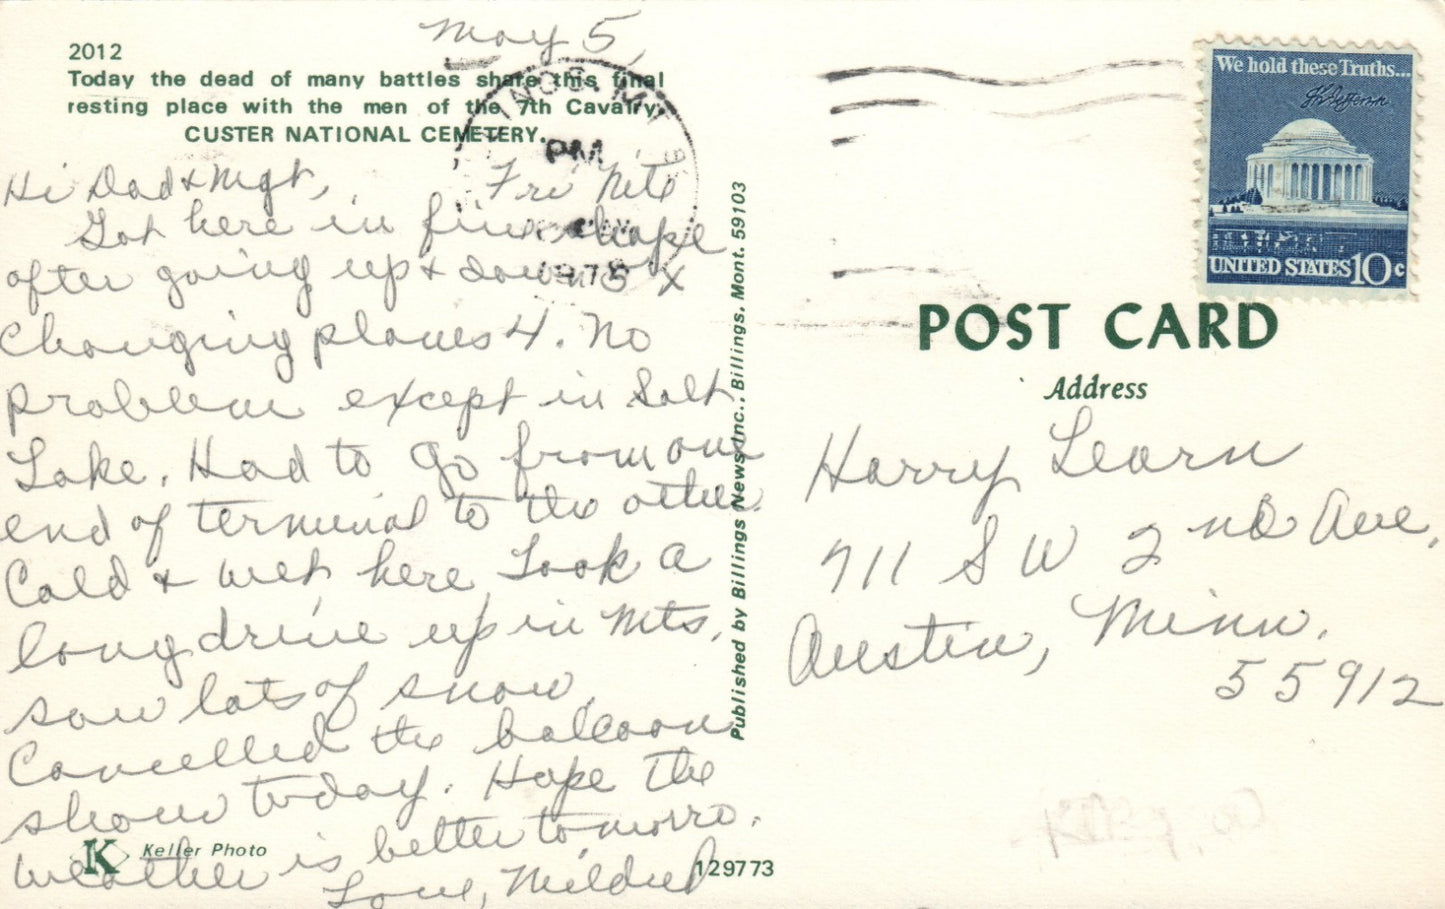 May 5,
2012
Today the dead of many battles share this final
resting place with the men of the 7th Cavalry.
CUSTER NATIONAL CEMETERY.
Hi Dad & Mgt, Fri Nite
Got here in fine shape
after going up & down 5 X
changing planes 4. No
problem except in Salt
Lake. Had to go from one
end of terminal to the other.
Cold & wet here. Took a
long drive up in Mts,
saw lots of snow.
Cancelled the balloon
show today. Hope the
weather is better tomorro.
Love, Mildred
K Keller Photo
129773
Published by Billings News, Inc., Billings, Mont. 59103
PM
We hold these Truths...
Th Jefferson
UNITED STATES 10c
POST CARD
Address
Harry Learn
711 S W 2nd Ave,
Austin, Minn.
55912